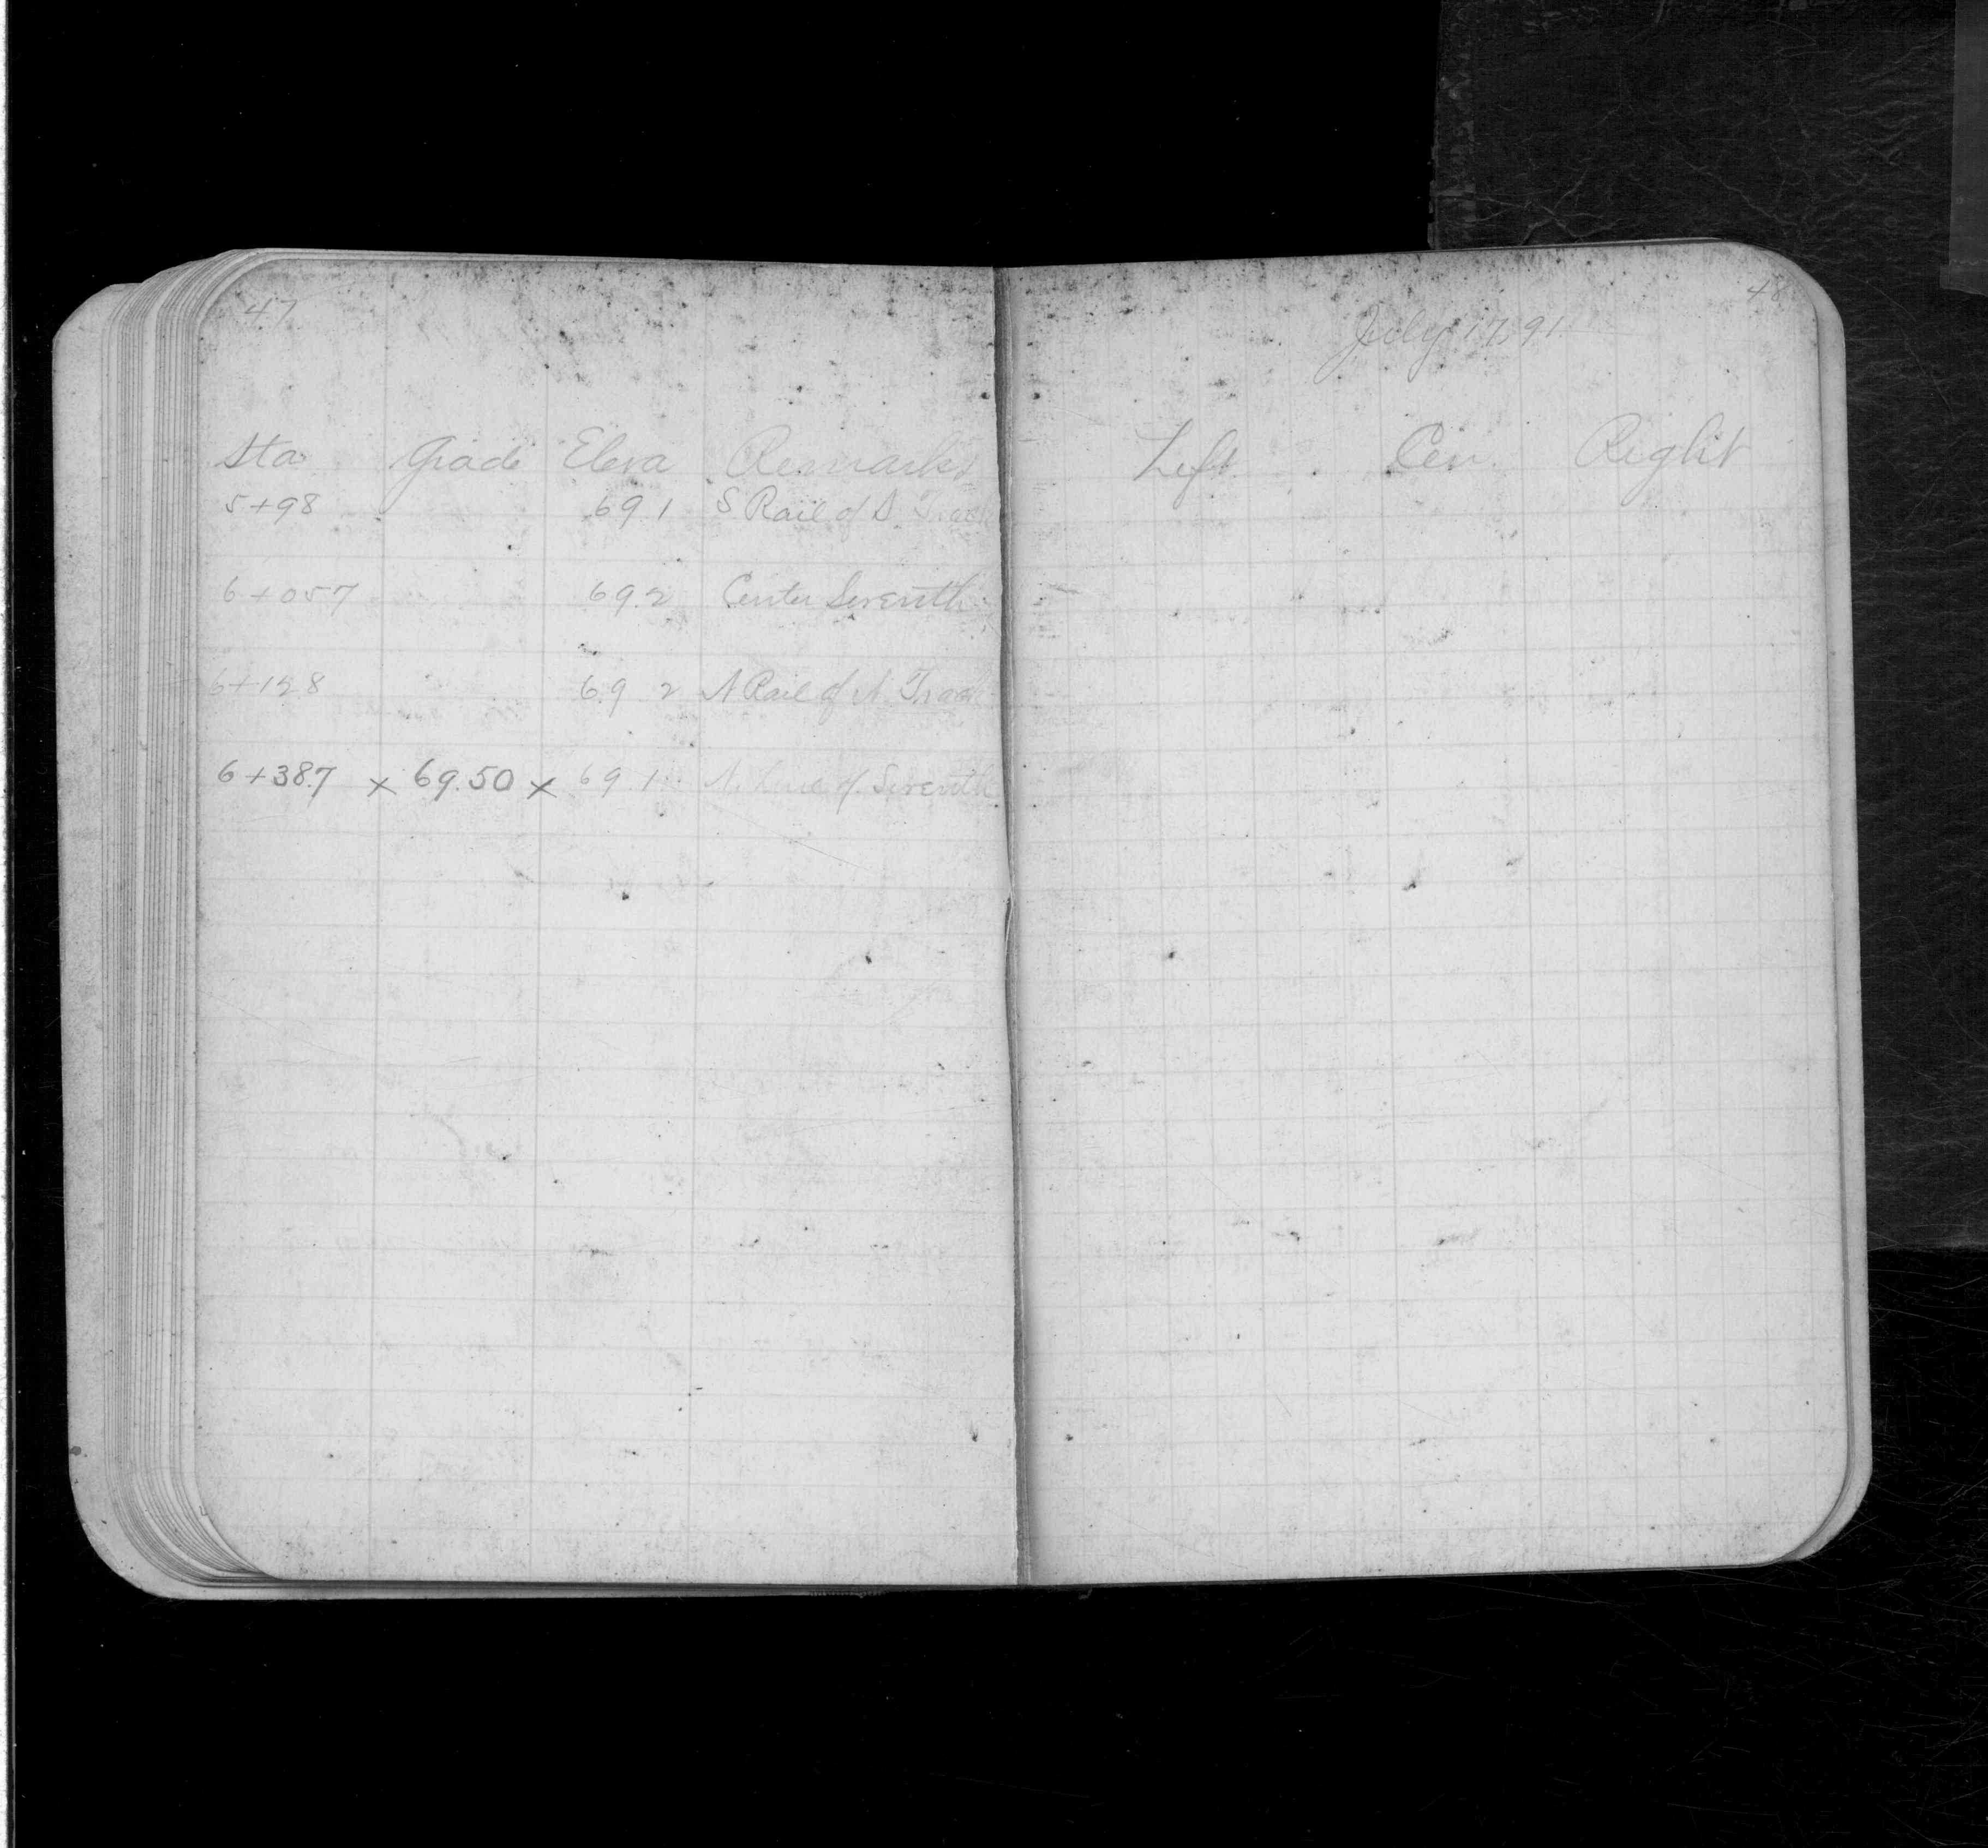 47
Sta Grade Eleva Remarks
5+98 69.1 S Rail of S. Track
6+057 69.2 Center Seventh
6+128 69 2 N Rail of N. Track
6+38.7 x 69.50 x 69.1 N. Line of Seventh
48
July 17, 91
Left Cen. Right